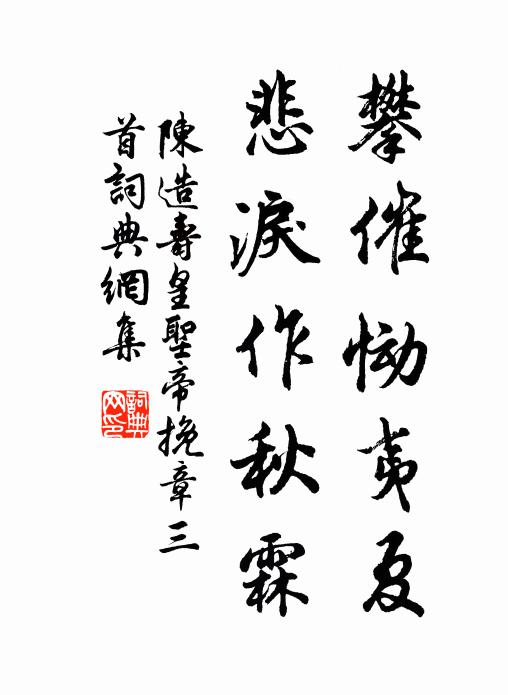 攀催恸夷夏
悲淚作秋霖
陳造壽皇聖帝挽章三
首詞典網集
詞典
网印